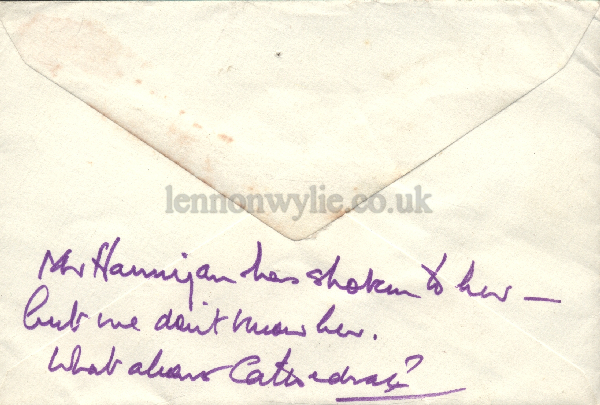 lennonwylie.co.uk
Mr Hannigan has spoken to her —
but we don't know her.
What about Cathedral?